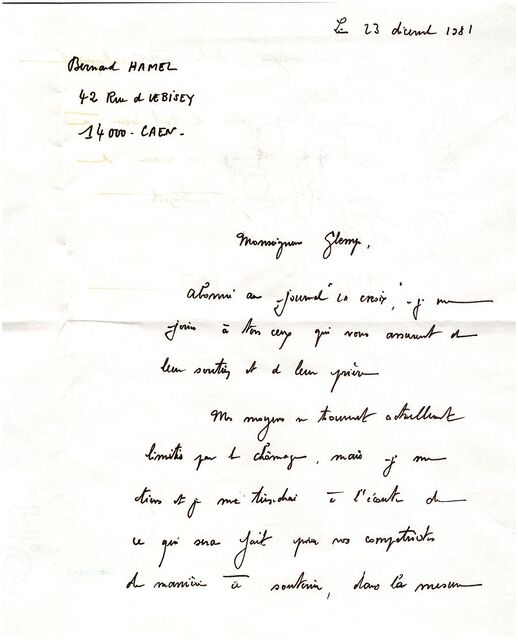 Le 23 décembre 1981
Bernard HAMEL
42 Rue de LEBISEY
14000 - CAEN -
Monseigneur Glemp,
abonné au journal "La croix", je me
joins à tous ceux qui vous assurent de
leur soutien et de leur prière
Mes moyens se trouvent actuellement
limités par le chômage, mais je me
tiens et je me tiendrai à l'écoute de
ce qui sera fait pour vos compatriotes
de manière à soutenir, dans la mesure